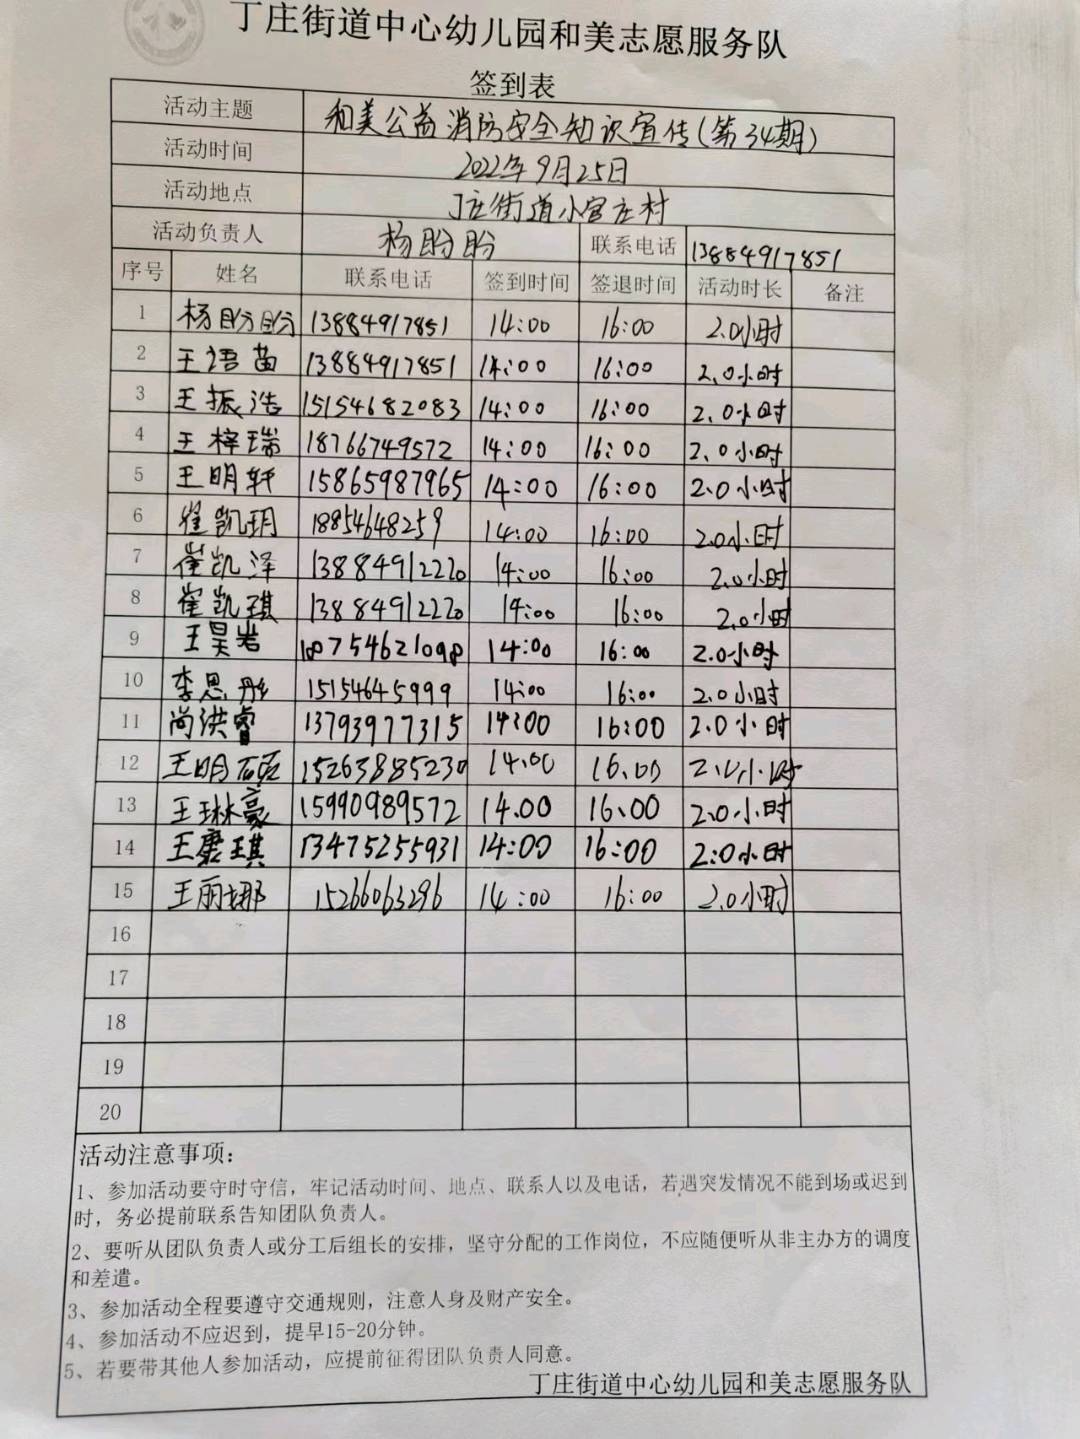 丁庄街道中心幼儿园和美志愿服务队
签到表
活动主题 和美公益消防安全知识宣传(第34期)
活动时间 2022年9月25日
活动地点 丁庄街道小官庄村
活动负责人 杨盼盼 联系电话 13884917851
序号 姓名 联系电话 签到时间 签退时间 活动时长 备注
1 杨盼盼 13884917851 14:00 16:00 2.0小时
2 王语苗 13884917851 14:00 16:00 2.0小时
3 王振浩 15154682083 14:00 16:00 2.0小时
4 王梓瑞 18766749572 14:00 16:00 2.0小时
5 王明轩 15865987965 14:00 16:00 2.0小时
6 崔凯玥 18854648259 14:00 16:00 2.0小时
7 崔凯泽 13884912220 14:00 16:00 2.0小时
8 崔凯琪 13884912220 14:00 16:00 2.0小时
9 王昊岩 18754621098 14:00 16:00 2.0小时
10 李思彤 15154645999 14:00 16:00 2.0小时
11 尚洪睿 13793977315 14:00 16:00 2.0小时
12 王明硕 15263885230 14.00 16.00 2.0小时
13 王琳豪 15990989572 14.00 16.00 2.0小时
14 王赓琪 13475255931 14:00 16:00 2:0小时
15 王丽娜 15266063296 14:00 16:00 2.0小时
16
17
18
19
20
活动注意事项:
1、参加活动要守时守信，牢记活动时间、地点、联系人以及电话，若遇突发情况不能到场或迟到
时，务必提前联系告知团队负责人。
2、要听从团队负责人或分工后组长的安排，坚守分配的工作岗位，不应随便听从非主办方的调度
和差遣。
3、参加活动全程要遵守交通规则，注意人身及财产安全。
4、参加活动不应迟到，提早15-20分钟。
5、若要带其他人参加活动，应提前征得团队负责人同意。
丁庄街道中心幼儿园和美志愿服务队